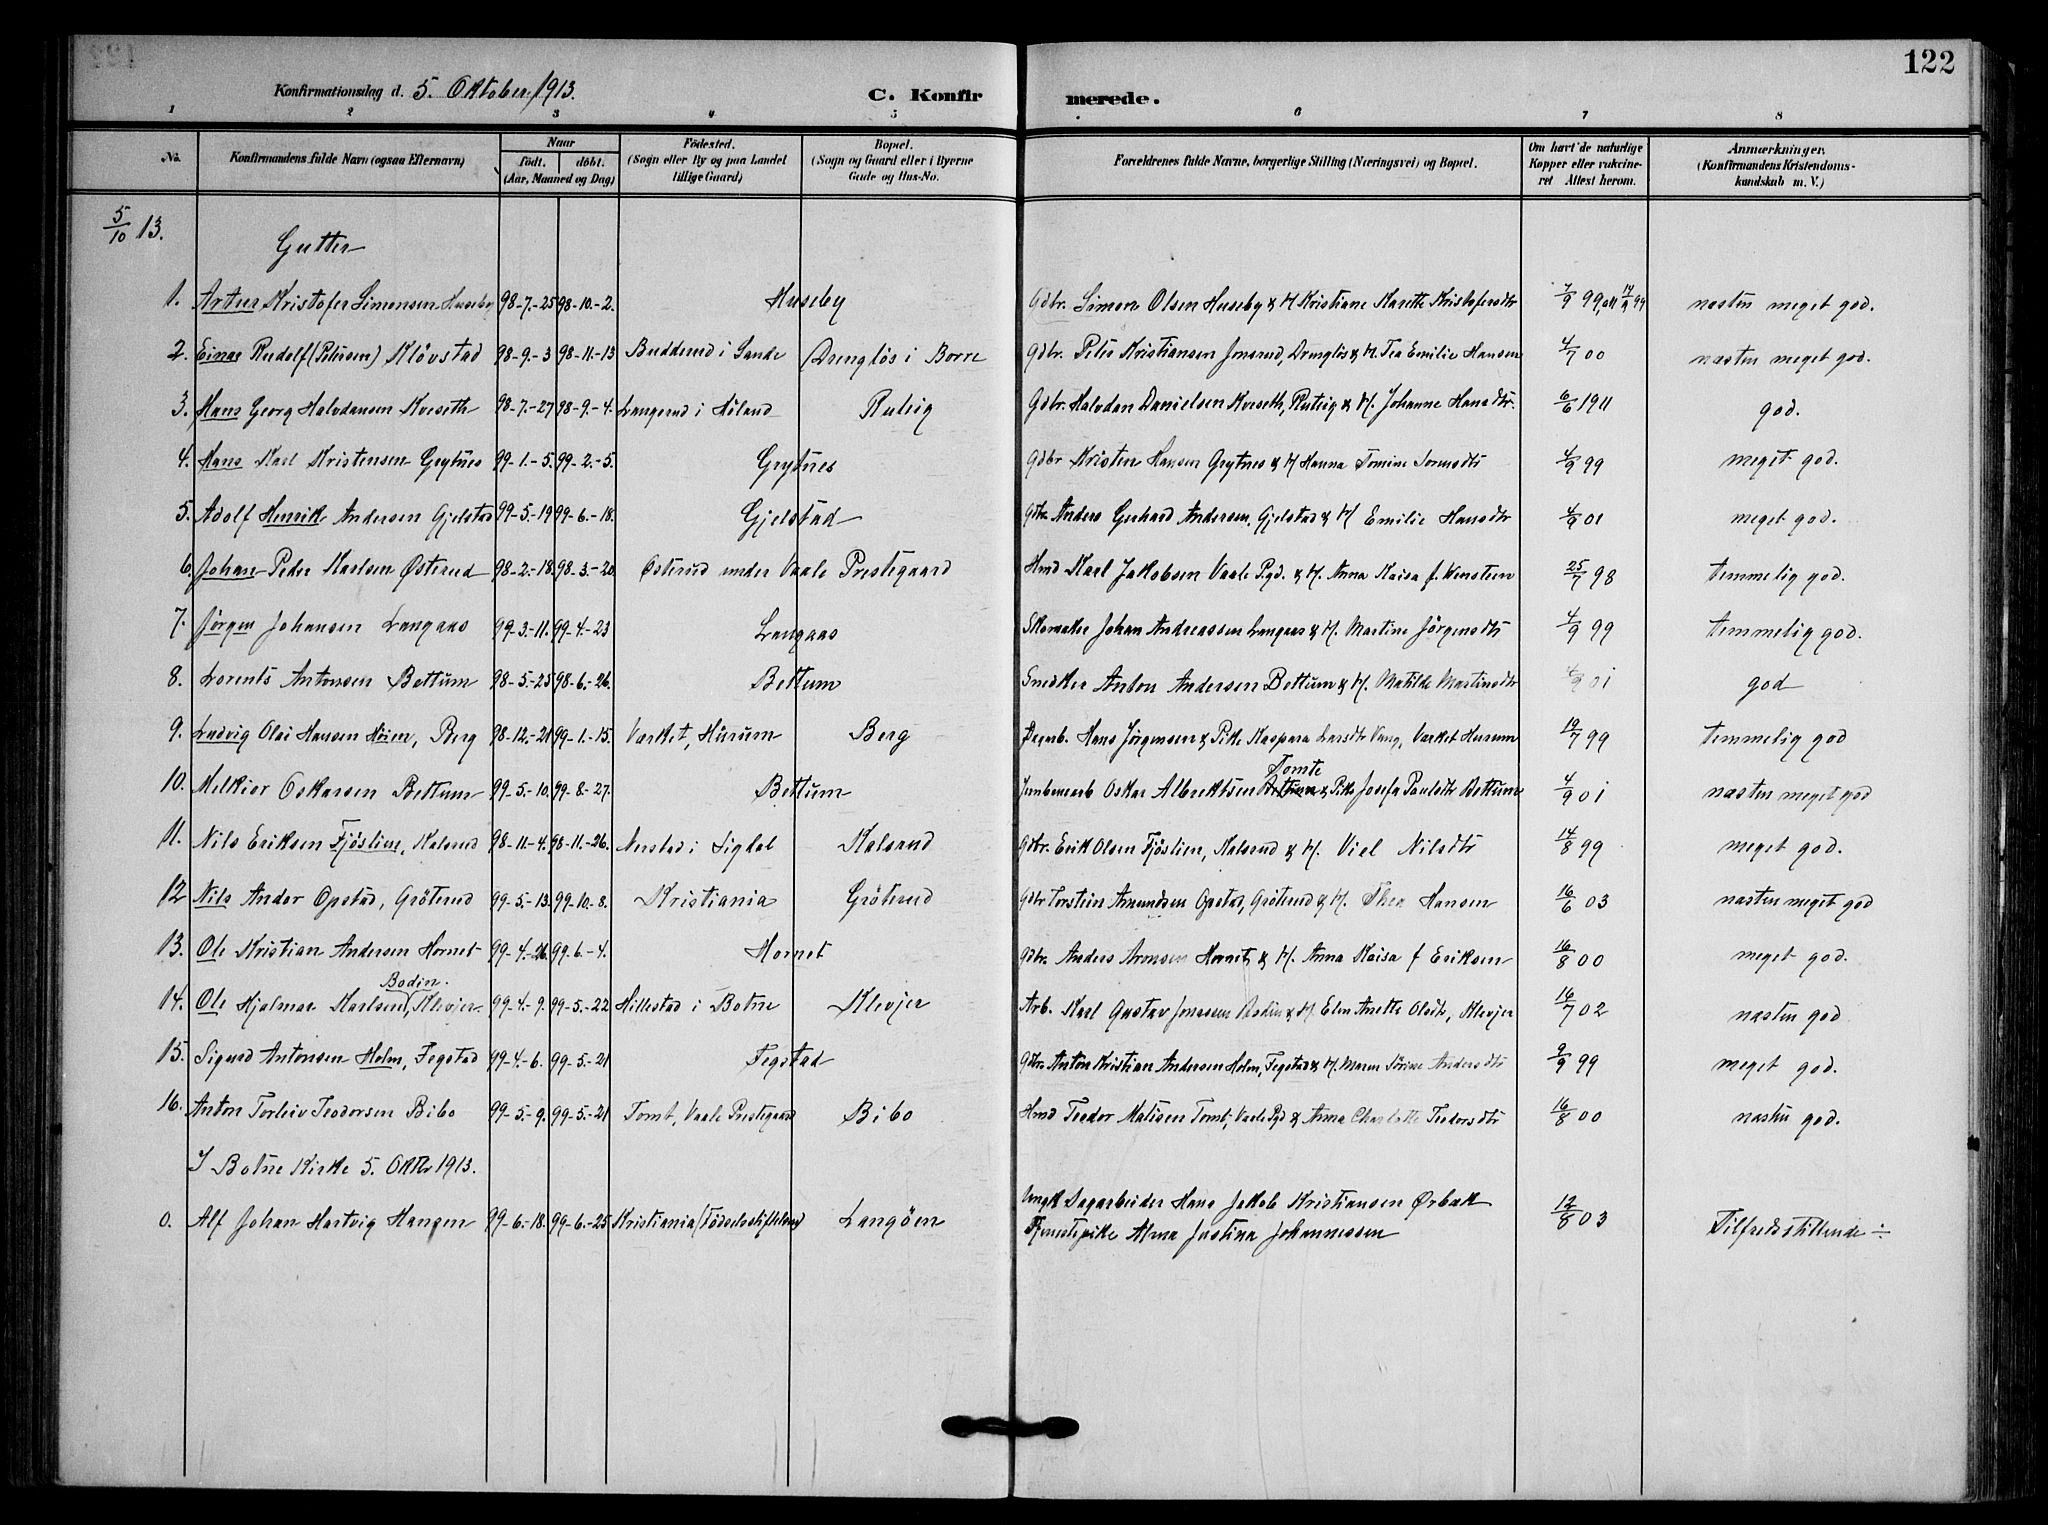 122
Konfirmationsdag d. 5. Oktober 1913. C. Konfirmerede.
1 2 3 4 5 6 7 8
No. Konfirmandens fulde Navn (ogsaa Efternavn) Naar födt. döbt. (Aar, Maaned og Dag) Födested. (Sogn eller By og paa Landet tillige Gaard) Bopæl. (Sogn og Gaard eller i Byerne Gade og Hus-No. Forældrenes fulde Navne, borgerlige Stilling (Næringsvei) og Bopæl. Om havt de naturlige Kopper eller vakcineret Attest herom. Anmærkninger. (Konfirmandens Kristendomskundskab m. V.)
5/10 13.
Gutter
1. Artur Kristofer Simensen Huseby 98-7-25 98-10-2. Huseby Gdbr. Simon Olsen Huseby & H. Kristiane Marethe Kristofersdtr 7/9 99, 14/9 99 næsten meget god.
2. Einar Rudolf (Petersen) Klövstad 98-9-3 98-11-13 Budderud i Sande Drenglös i Borre Gdbr. Peter Kristiansen Jonsrud, Drenglös & H. Tea Emilie Hansen 4/7 00 næsten meget god.
3. Hans Georg Halvdansen Kveseth 98-7-27 98-9-4. Langerud i Höland Rutvig Gdbr. Halvdan Danielsen Kveseth, Rutvig & H. Johanne Hansdtr. 6/6 1911 god.
4. Hans Karl Kristensen Grytnes 99-1-5. 99-2-5. Grytnes Gdbr Kristen Hansen Grytnes & H Hanna Tomine 4/9 99 meget god.
5. Adolf Henrik Andersen Gjelstad 99-5-19 99-6-18. Gjelstad Gdbr. Anders Gerhard Andersen, Gjelstad & H Emilie Hansdtr 4/9 01 meget god.
6. Johan Peder Karlsen Østerud 98-2-18. 98-3-20. Østerud under Vaale Prestegaard Hmd Karl Jakobsen Vaale Pgd. & H. Anna Kaisa f. Wenstern 25/7 98 temmelig god.
7. Jörgen Johansen Langaas 99-3-11. 99-4-23 Langaas Skomaker Johan Andreassen Langaas & H. Martine Jörgensdtr 4/9 99 temmelig god.
8. Lorents Antonsen Bettum 98-5-25 98-6-26. Bettum Snedker Anton Andersen Bettum & H. Matilde Martinsdtr 4/9 01 god
9. Ludvig Olai Hansen Höien, Berg 98-12-21 99-1-15. Værket, Hurum Berg Dagarb. Hans Jörgensen & Pike Kaspara Larsdtr Vang, Værket Hurum 19/7 99 temmelig god
10. Melkior Oskarsen Bettum 99-5-10. 99-8-27. Bettum Jernbanearb Oskar Albrektsen Tomte & Pike Josefa Paulsdtr Bettum 4/9 01 næsten meget god
11. Nils Eriksen Fjöslien, Kalsrud 98-11-4. 98-11-26. Nerstad i Sigdal Kalsrud Gdbr. Erik Olsen Fjöslien, Kalsrud & H. Viel Nilsdtr 14/8 99 meget god.
12 Nils Andor Opstad, Gröterud 99-5-13. 99-10-8. Kristiania Gröterud Gdbr Torstein Amundsen Opstad, Gröterud & H. Thea Hansen 16/6 03 næsten meget god
13. Ole Kristian Andersen Hornet 99-4-26. 99-6-4. Hornet Gdbr. Anders Aronsen Hornet & H. Anna Kaisa f Eriksen 16/8 00 meget god.
14. Ole Hjalmar Karlsen Bodin, Klevjer 99-4-9. 99-5-22 Hillestad i Botne Klevjer Arb. Karl Gustav Jonassen Bodin & H. Elen Anette Olsdtr, Klevjer 16/7 02 næsten god
15. Sigurd Antonsen Holm, Fegstad 99-4-6. 99-5-21 Fegstad Gdbr. Anton Kristian Andersen Holm, Fegstad & H. Maren Sörine Andersdtr 9/9 99 meget god.
16. Anton Torleiv Teodorsen Bibo 99-5-9. 99-5-21 Tomt, Vaale Prestegaard Bibo Hmd Teodor Matisen Tomt, Vaale Pgd & Anna Charlotte Teodorsdtr 16/8 00 næsten god.
I Botne Kirke 5. Oktbr 1913.
0. Alf Johan Hartvig Hansen 99-6-18. 99-6-25. Kristiania (Födselsstiftelsen) Langöen Ungk Dagarbeider Hans Jakob Kristiansen Ørbæk 12/8 03 Tilfredsstillende ÷
Tjenestepike Alma Justina Johannessen